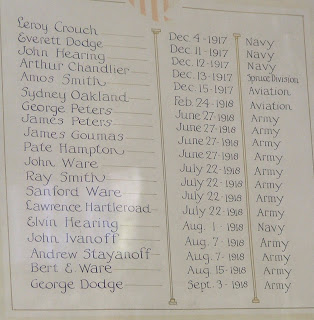 Leroy Crouch Dec. 4 - 1917 Navy
Everett Dodge Dec. 11 - 1917 Navy
John Hearing Dec. 12 - 1917 Navy
Arthur Chandlier Dec. 13 - 1917 Spruce Division
Amos Smith Dec. 15 - 1917 Aviation
Sydney Oakland Feb. 24 - 1918 Aviation
George Peters June 27 - 1918 Army
James Peters June 27 - 1918 Army
James Goumas June 27 - 1918 Army
Pate Hampton June 27 - 1918 Army
John Ware July 22 - 1918 Army
Ray Smith July 22 - 1918 Army
Sanford Ware July 22 - 1918 Army
Lawrence Hartleroad July 22 - 1918 Army
Elvin Hearing Aug. 1 - 1918 Navy
John Ivanoff Aug. 7 - 1918 Army
Andrew Stayanoff Aug. 7 - 1918 Army
Bert E Ware Aug. 15 - 1918 Army
George Dodge Sept. 3 - 1918 Army